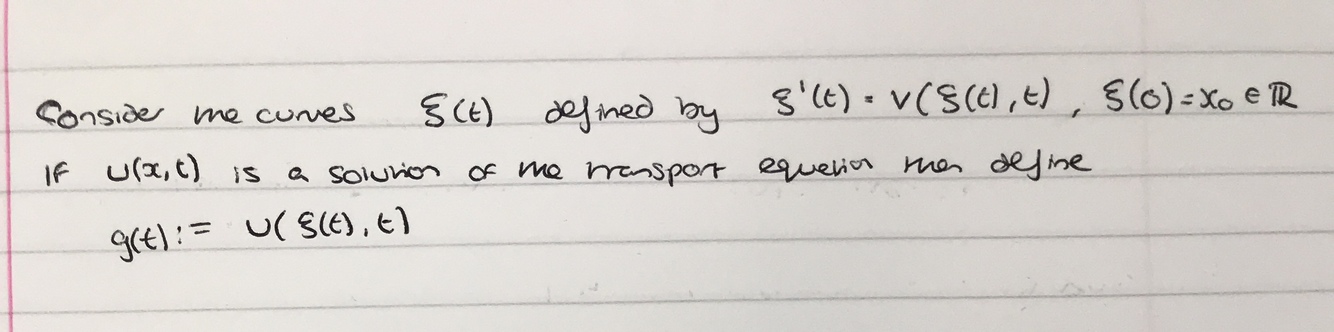 Consider the curves ξ(t) defined by ξ'(t) = v(ξ(t), t) , ξ(0) = x₀ ∈ ℝ
If u(x,t) is a solution of the transport equation then define
g(t) := u(ξ(t), t)